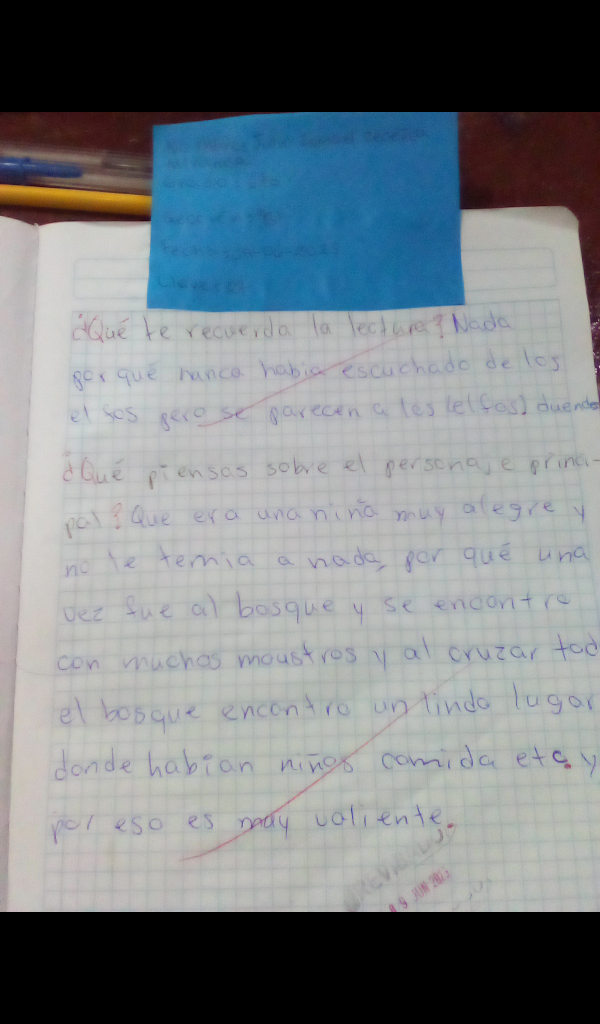 ¿Qué te recuerda la lectura? Nada
por qué nunca habia escuchado de los
elfos pero se parecen a los (elfos) duendes
¿Qué piensas sobre el personaje princi-
pal? Que era una niña muy alegre y
no le temia a nada, por qué una
vez fue al bosque y se encontro
con muchos moustros y al cruzar tod
el bosque encontro un lindo lugar
donde habían niños comida etc. y
por eso es muy valiente.
JUN